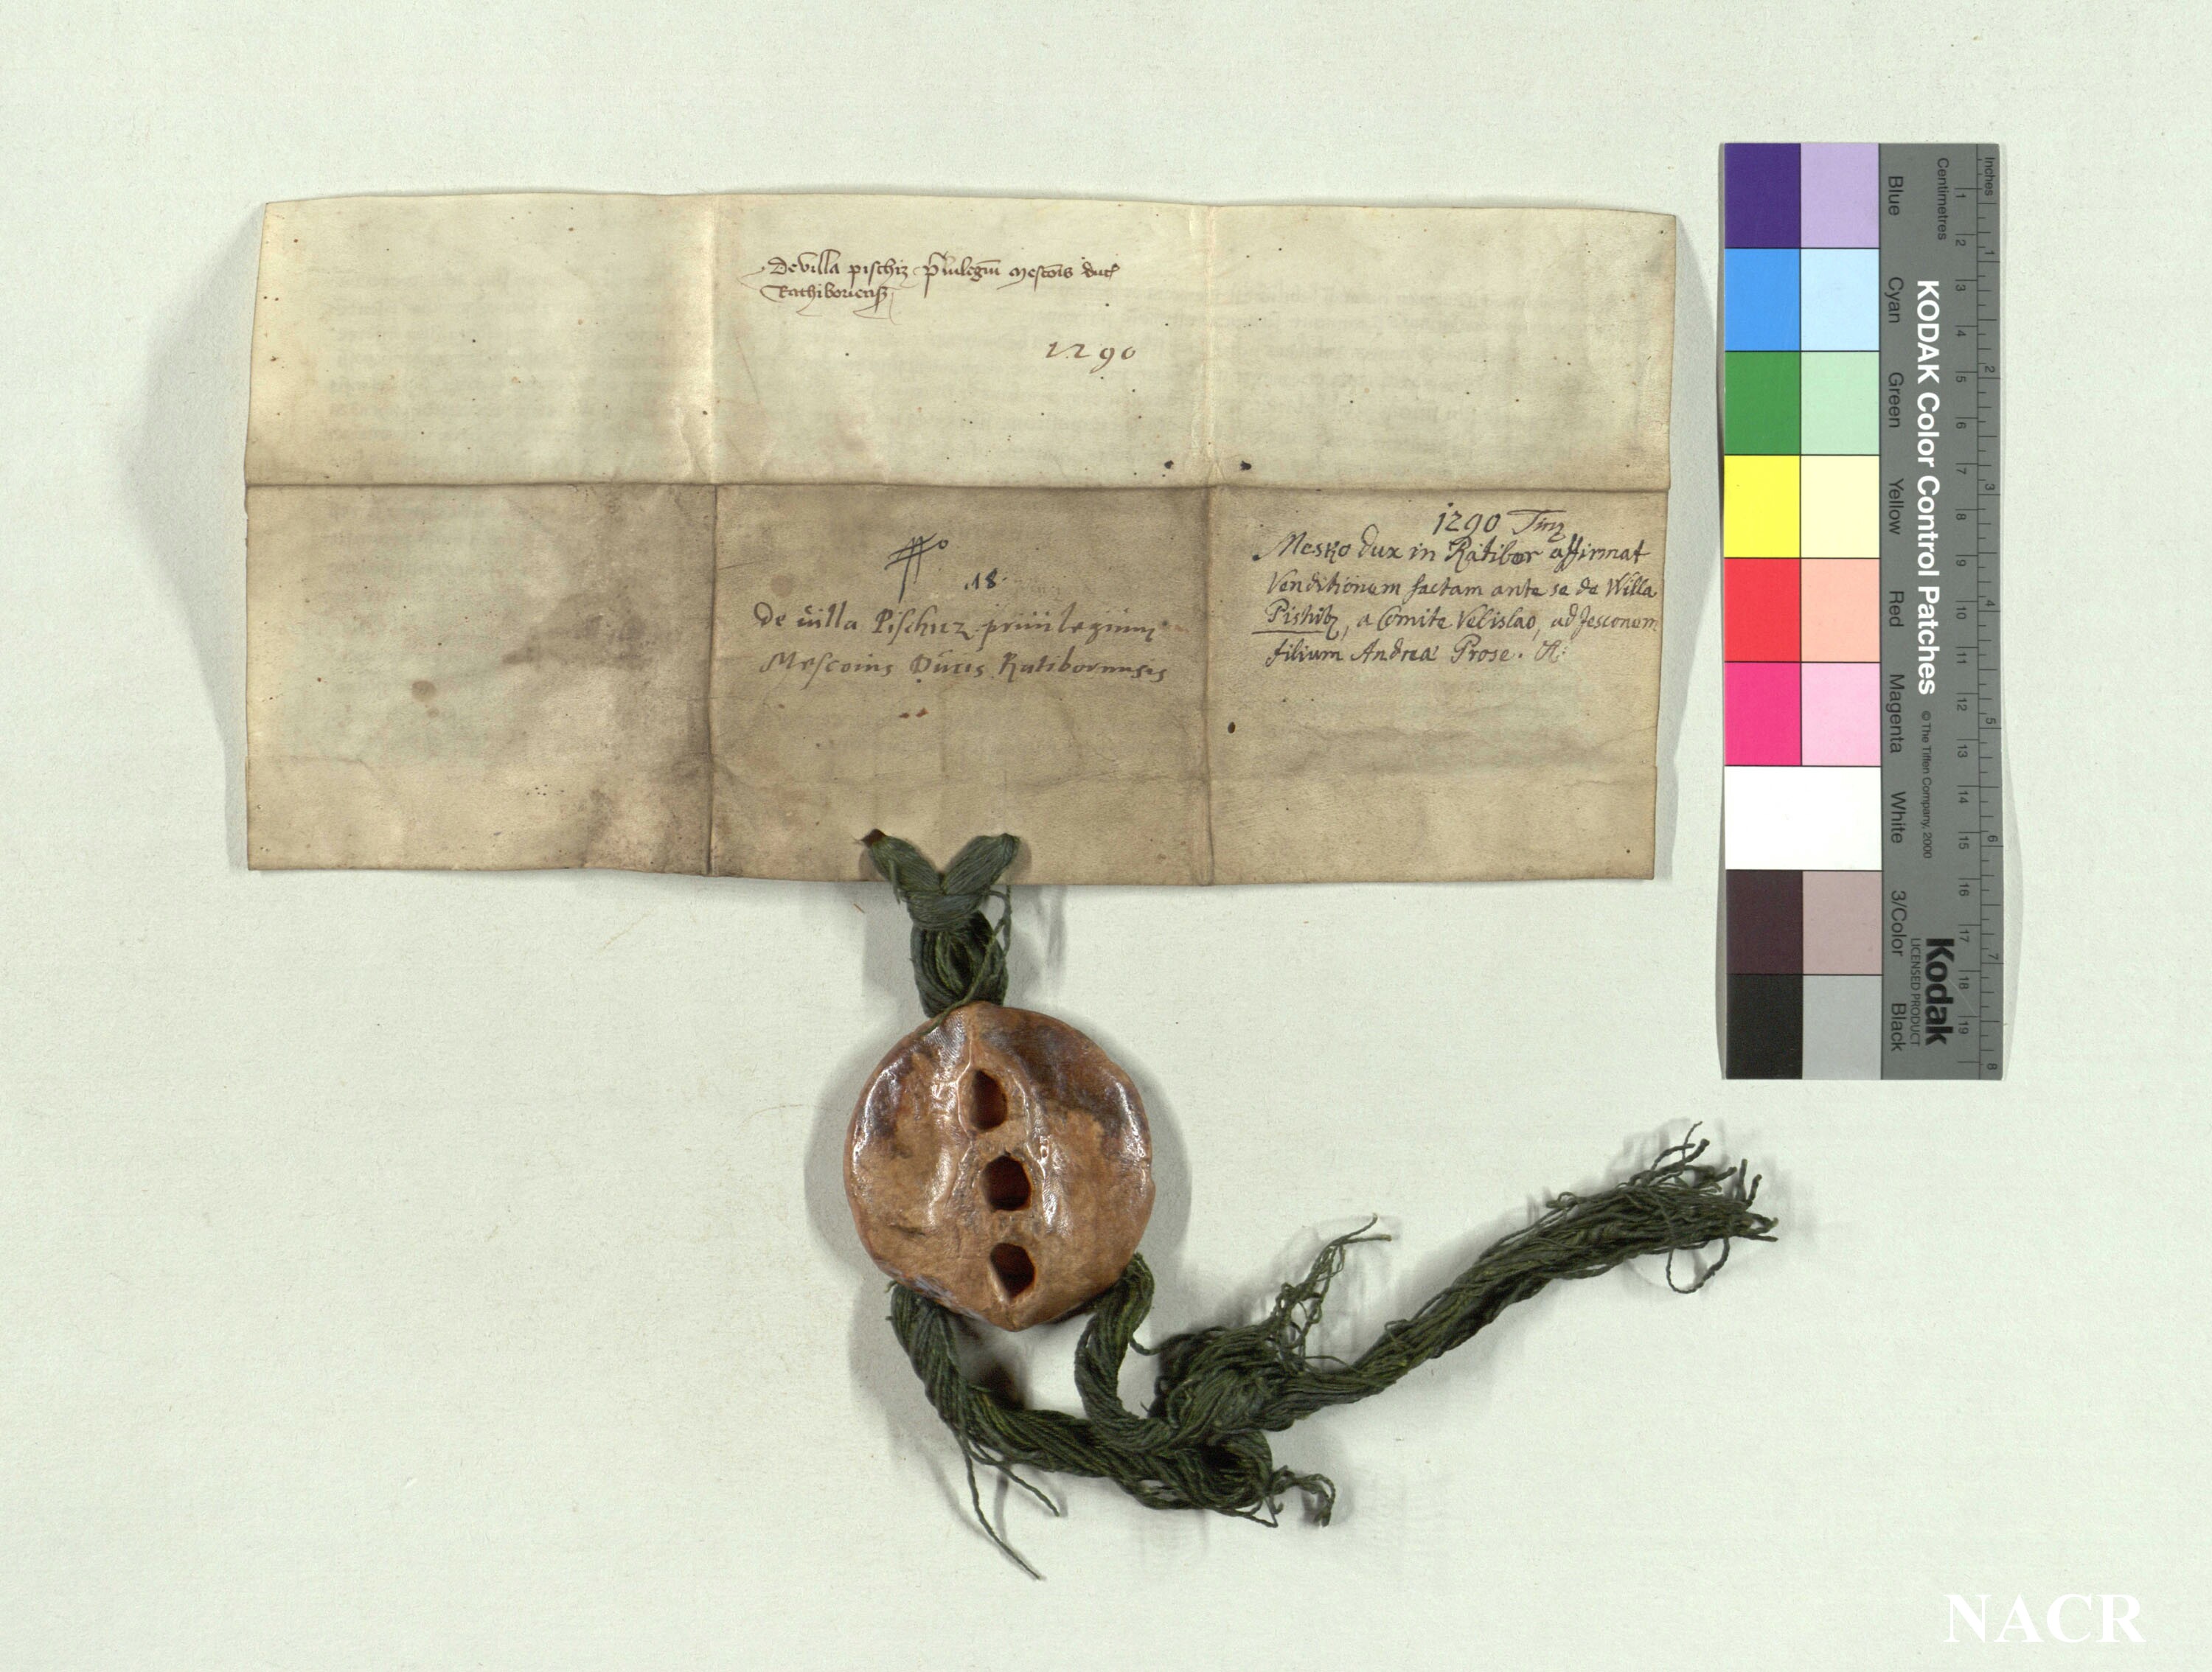 De villa pischiz p̄uilegiū mescōis duc̄
Rathiboriensis
1290
18
De villa Pischitz priuilegium
Mesconis Ducis Ratiboriensis
1290
Mesko dux in Ratibor affirmat
Venditionem factam ante se de Willa
Pishitz, a Comite Velislao, ad Jesconem
filium Andreä Prose.
KODAK Color Control Patches
© The Tiffen Company, 2000
Kodak
LICENSED PRODUCT
Blue
Cyan
Green
Yellow
Red
Magenta
White
3/Color
Black
Centimetres
1 2 3 4 5 6 7 8 9 10 11 12 13 14 15 16 17 18 19
Inches
1 2 3 4 5 6 7 8
NACR